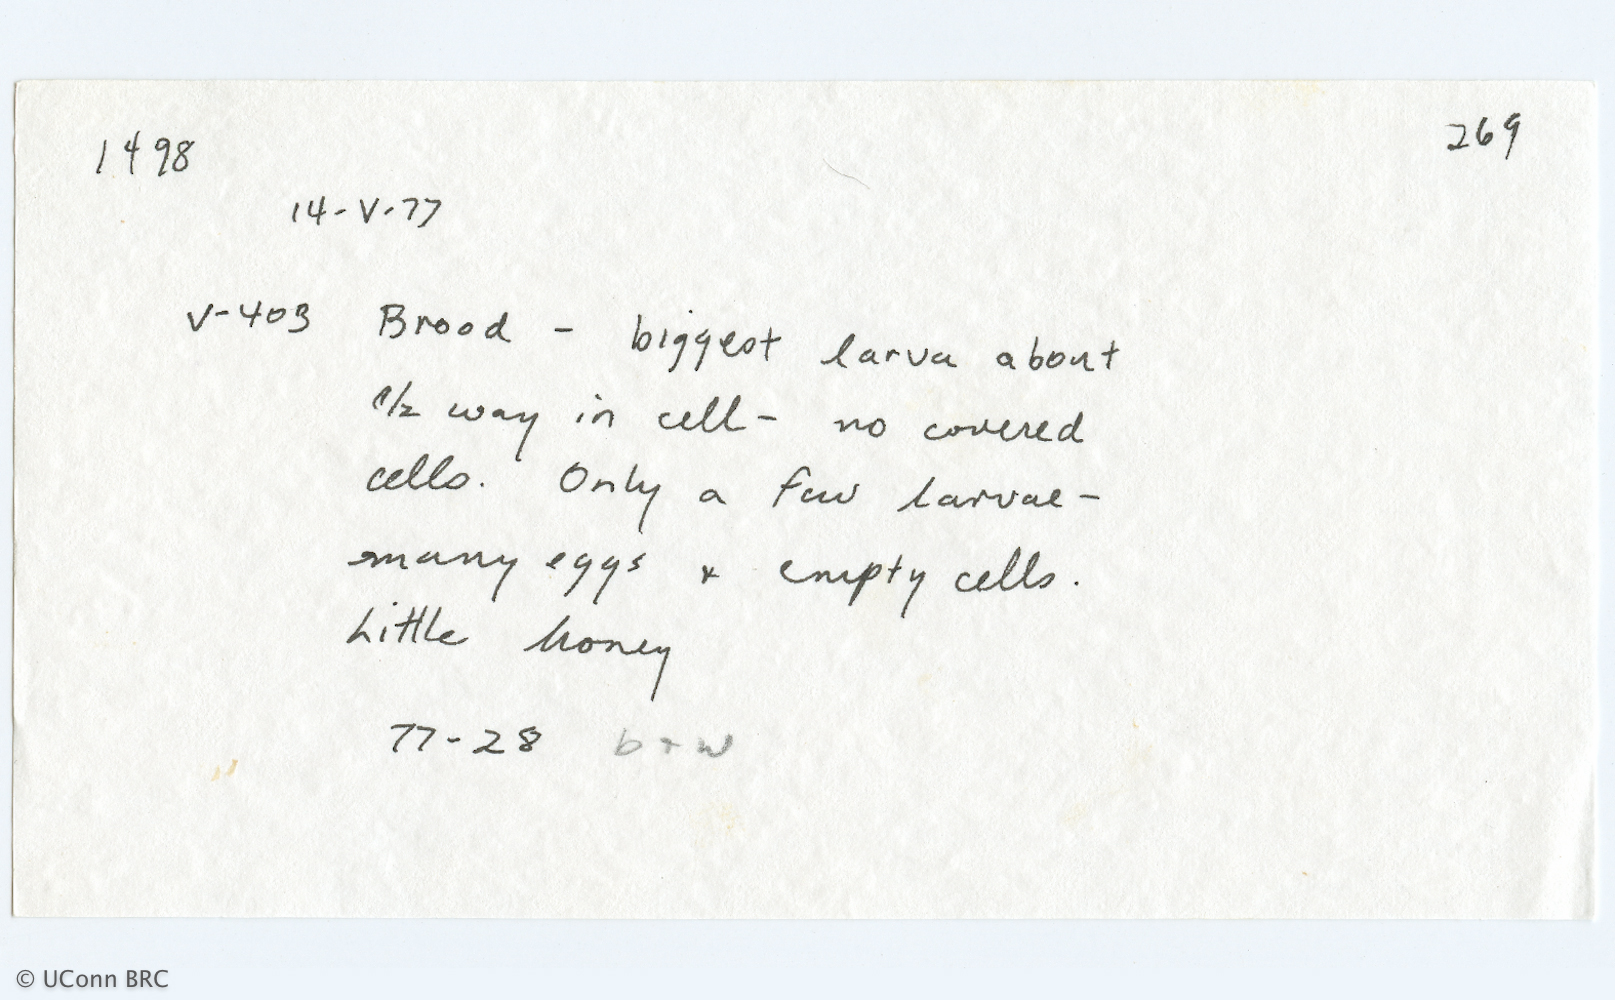 1498
269
14-V-77
V-403 Brood - biggest larva about
1/2 way in cell - no covered
cells. Only a few larvae -
many eggs + empty cells.
Little honey
77-28 b+w
© UConn BRC